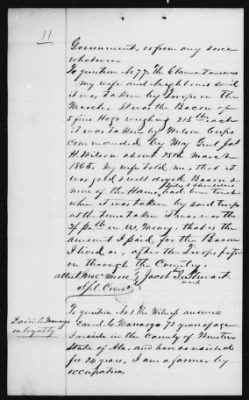 11
Government or from any source
whatsoever
To question No 77. The Claimant answers
My wife and neighbours said
it was taken by troops on the
March. It was the Bacon of
5 fine Hogs weighing 215 lbs each
it was taken by Wilson Corps
commanded by May Genl Jas
H Wilson about 28th March
1865. My wife told me, that it
was good & well dryed Bacon
none of the Hams, had been
when it was taken by said troops
at the time taken it was worth
pr lb in Money, that is the
amount I paid for the Bacon
I lived on, after the troops passed
on through the Country.
attest Jacob Stewart
mark
Spl Comr
David C.
on loyalty
To question No 1 The Witness answers
David C. 73 years of age
I reside in the County of
State of Ala. and have so resided
for years, I am a farmer by
occupation